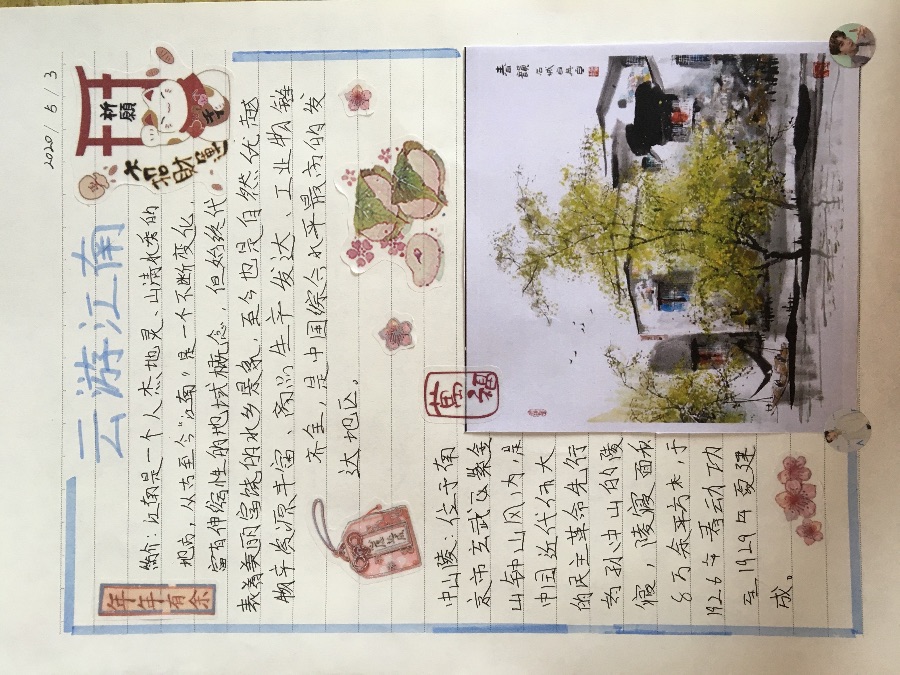 2020/5/3
祈願
云游江南
年年有余
简介：江南是一个人杰地灵、山清水秀的
地方，从古至今“江南”是一个不断变化、
富有伸缩性的地域概念，但始终代
表着美丽富饶的水乡景象，至今也是自然优越
物产资源丰富、商品生产发达、工业物种
齐全，是中国综合水平最高的发
达地区。
萬福
中山陵：位于南
京市玄武区紫金
山钟山风内，是
中国近代伟大
的民主革命先行
者孙中山的陵
寝，陵寝面积
8万余平方米，于
1926年春动功
至1929年夏建
成。
春韻